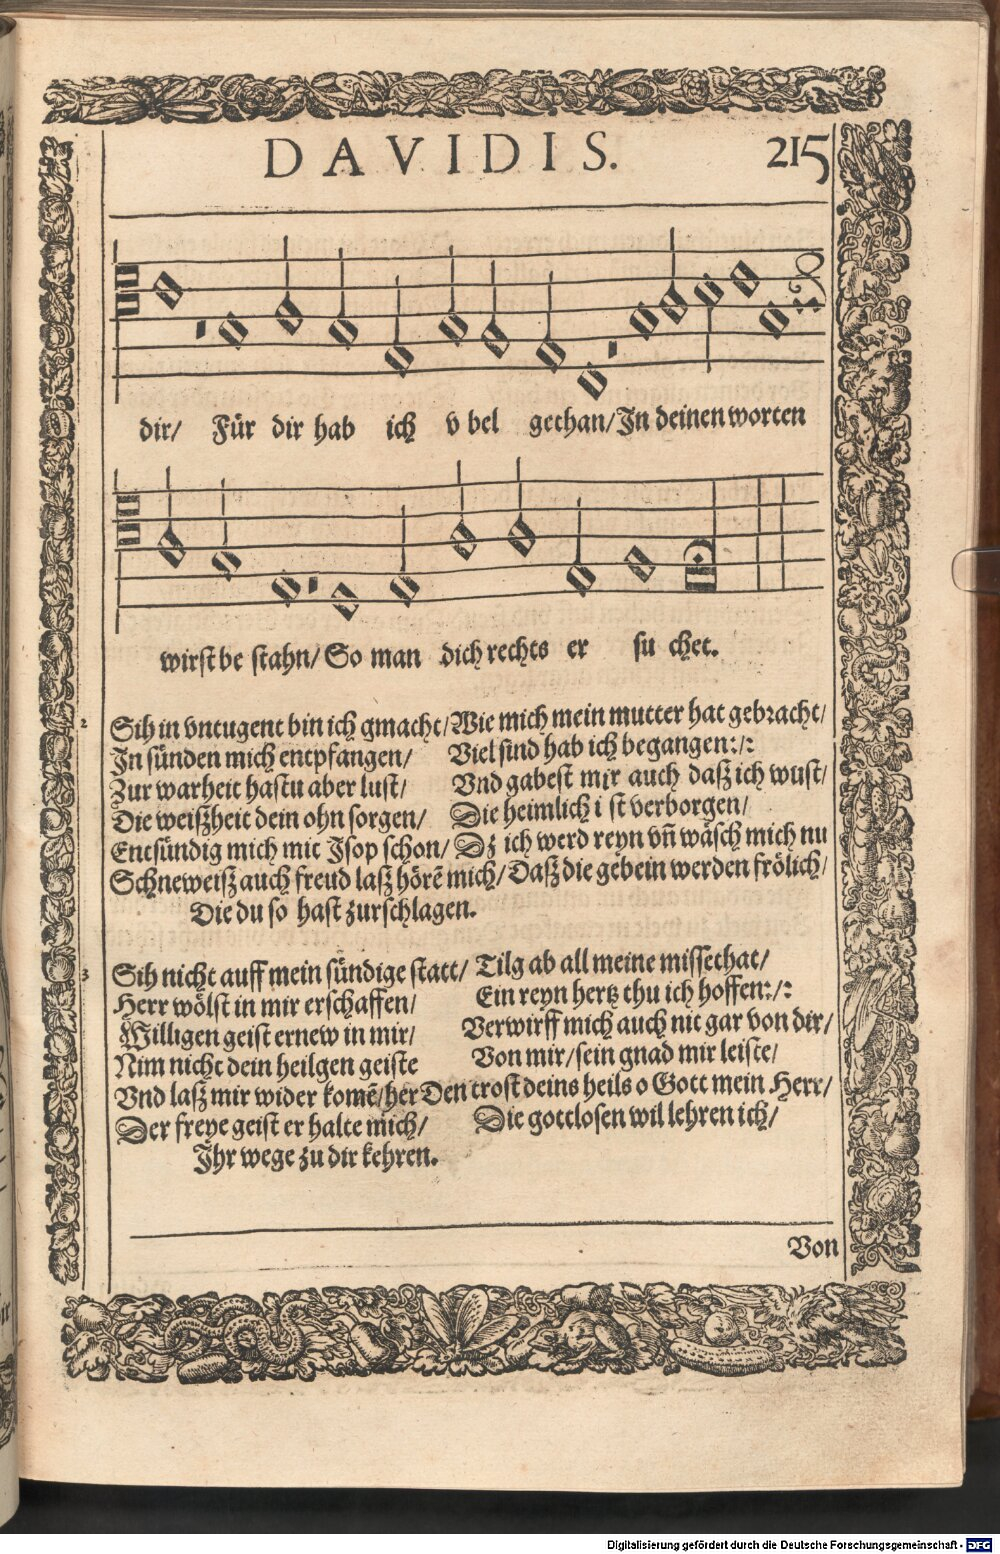 DAVIDIS. 215
dir/ Für dir hab ich v bel gethan/In deinen worten
wirst be stahn/ So man dich rechts er su chet.
2 Sih in vntugent bin ich gmacht/Wie mich mein mutter hat gebracht/
In sünden mich entpfangen/ Viel sind hab ich begangen:/:
Zur warheit hastu aber lust/ Vnd gabest mir auch daß ich wust/
Die weißheit dein ohn sorgen/ Die heimlich i st verborgen/
Entsündig mich mit Jsop schon/ Dz ich werd reyn vn̄ wäsch mich nu
Schneweiß auch freud laß hörē mich/Daß die gebein werden frölich/
Die du so hast zurschlagen.
3 Sih nicht auff mein sündige statt/ Tilg ab all meine missethat/
Herr wölst in mir erschaffen/ Ein reyn hertz thu ich hoffen:/:
Willigen geist ernew in mir/ Verwirff mich auch nit gar von dir/
Nim nicht dein heilgen geiste Von mir/sein gnad mir leiste/
Vnd laß mir wider komē/her Den trost deins heils o Gott mein Herr/
Der freye geist er halte mich/ Die gottlosen wil lehren ich/
Jhr wege zu dir kehren.
Von
Digitalisierung gefördert durch die Deutsche Forschungsgemeinschaft - DFG